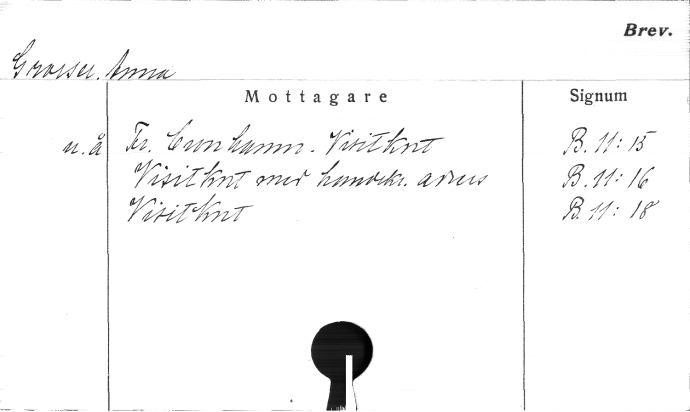 Brev.
Grosser, Anna
Mottagare Signum
u. å Fr. Cronhamn. Visitkort B. 11: 15
Visitkort med handskr. adress B. 11: 16
Visitkort B. 11: 18